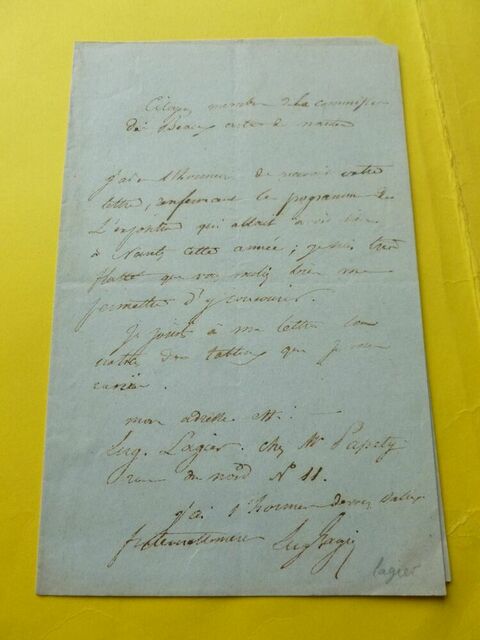 Citoyen membre de la commission
des Beaux arts de nantes
j'ai l'honneur de recevoir votre
lettre, renfermant le programme de
L'exposition qui allait avoir lieu
à Nantes cette année; je suis très
flatté que vous me
permettre d'y concourir.
Je joins à ma lettre
des tableaux que je vous
mon adresse est:
Eug. Lagier. chez Mr Papety
rue du nord N° 11.
j'ai l'honneur de vous saluer
fraternellement Eug Lagier
lagier